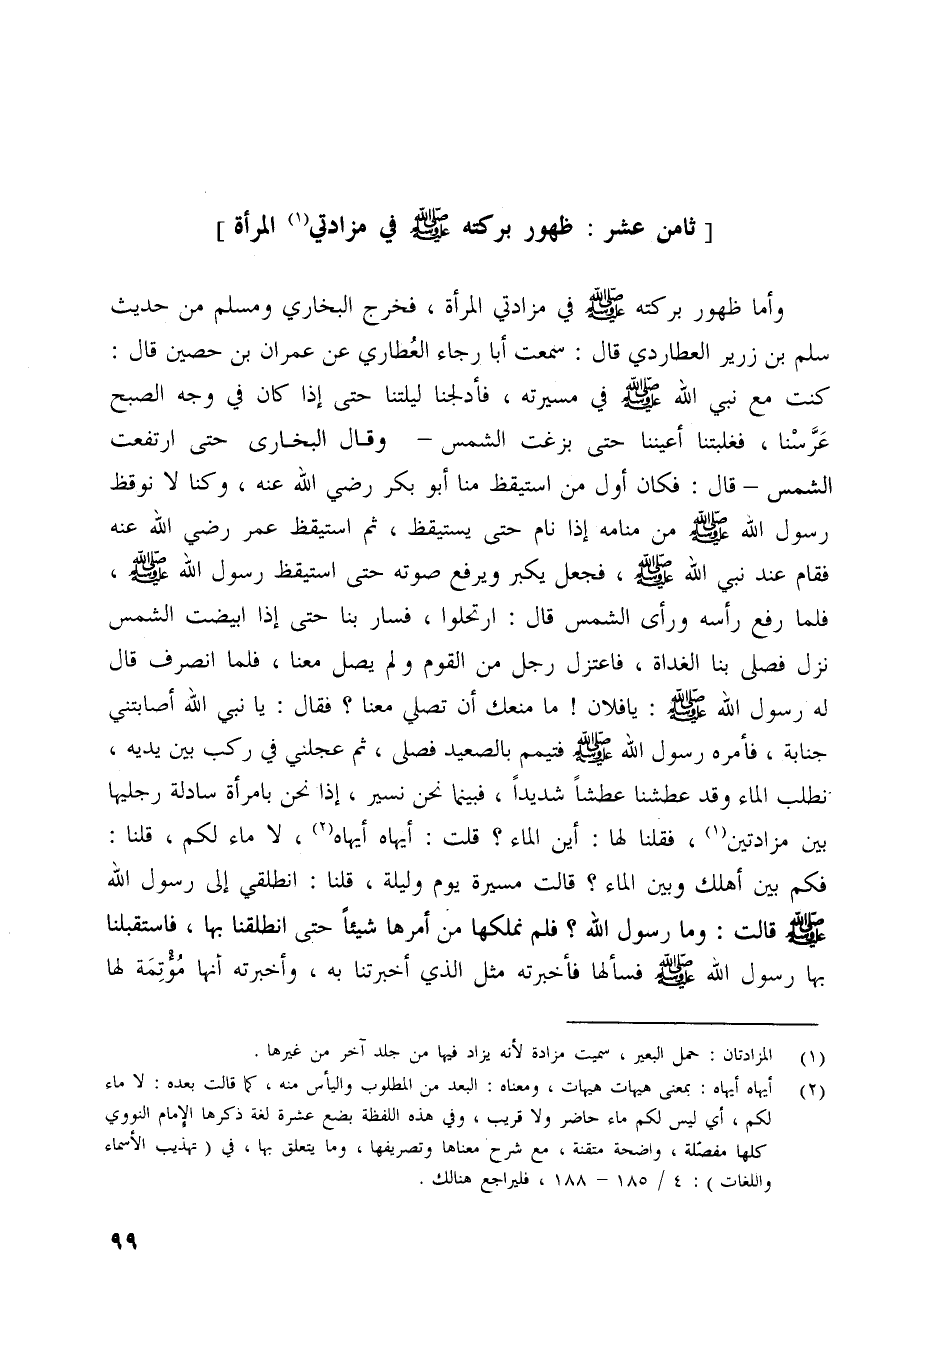 [ ثامن عشر : ظهور بركته ﷺ في مزادتي(١) المرأة ]
وأما ظهور بركته ﷺ في مزادتي المرأة ، فخرج البخاري ومسلم من حديث
سلم بن زرير العطاردي قال : سمعت أبا رجاء العُطاري عن عمران بن حصين قال :
كنت مع نبي الله ﷺ في مسيرته ، فأدلجنا ليلتنا حتى إذا كان في وجه الصبح
عَرَّسْنا ، فغلبتنا أعيننا حتى بزغت الشمس – وقال البخارى حتى ارتفعت
الشمس – قال : فكان أول من استيقظ منا أبو بكر رضي الله عنه ، وكنا لا نوقظ
رسول الله ﷺ من منامه إذا نام حتى يستيقظ ، ثم استيقظ عمر رضي الله عنه
فقام عند نبي الله ﷺ ، فجعل يكبر ويرفع صوته حتى استيقظ رسول الله ﷺ ،
فلما رفع رأسه ورأى الشمس قال : ارتحلوا ، فسار بنا حتى إذا ابيضت الشمس
نزل فصلى بنا الغداة ، فاعتزل رجل من القوم و لم يصل معنا ، فلما انصرف قال
له رسول الله ﷺ : يافلان ! ما منعك أن تصلي معنا ؟ فقال : يا نبي الله أصابتني
جنابة ، فأمره رسول الله ﷺ فتيمم بالصعيد فصلى ، ثم عجلني في ركب بين يديه ،
نطلب الماء وقد عطشنا عطشاً شديداً ، فبينما نحن نسير ، إذا نحن بامرأة سادلة رجليها
بين مزادتين(١) ، فقلنا لها : أين الماء ؟ قلت : أيهاه أيهاه(٢) ، لا ماء لكم ، قلنا :
فكم بين أهلك وبين الماء ؟ قالت مسيرة يوم وليلة ، قلنا : انطلقي إلى رسول الله
ﷺ قالت : وما رسول الله ؟ فلم نملكها من أمرها شيئاً حتى انطلقنا بها ، فاستقبلنا
بها رسول الله ﷺ فسألها فأخبرته مثل الذي أخبرتنا به ، وأخبرته أنها مُؤْتِمَة لها
(١) المزادتان : حمل البعير ، سميت مزادة لأنه يزاد فيها من جلد آخر من غيرها .
(٢) أيهاه أيهاه : بمعنى هيهات هيهات ، ومعناه : البعد من المطلوب واليأس منه ، كما قالت بعده : لا ماء
لكم ، أي ليس لكم ماء حاضر ولا قريب ، وفي هذه اللفظة بضع عشرة لغة ذكرها الإمام النووي
كلها مفصّلة ، واضحة متقنة ، مع شرح معناها وتصريفها ، وما يتعلق بها ، في ( تهذيب الأسماء
واللغات ) : ٤ / ١٨٥ – ١٨٨ ، فليراجع هنالك .
٩٩